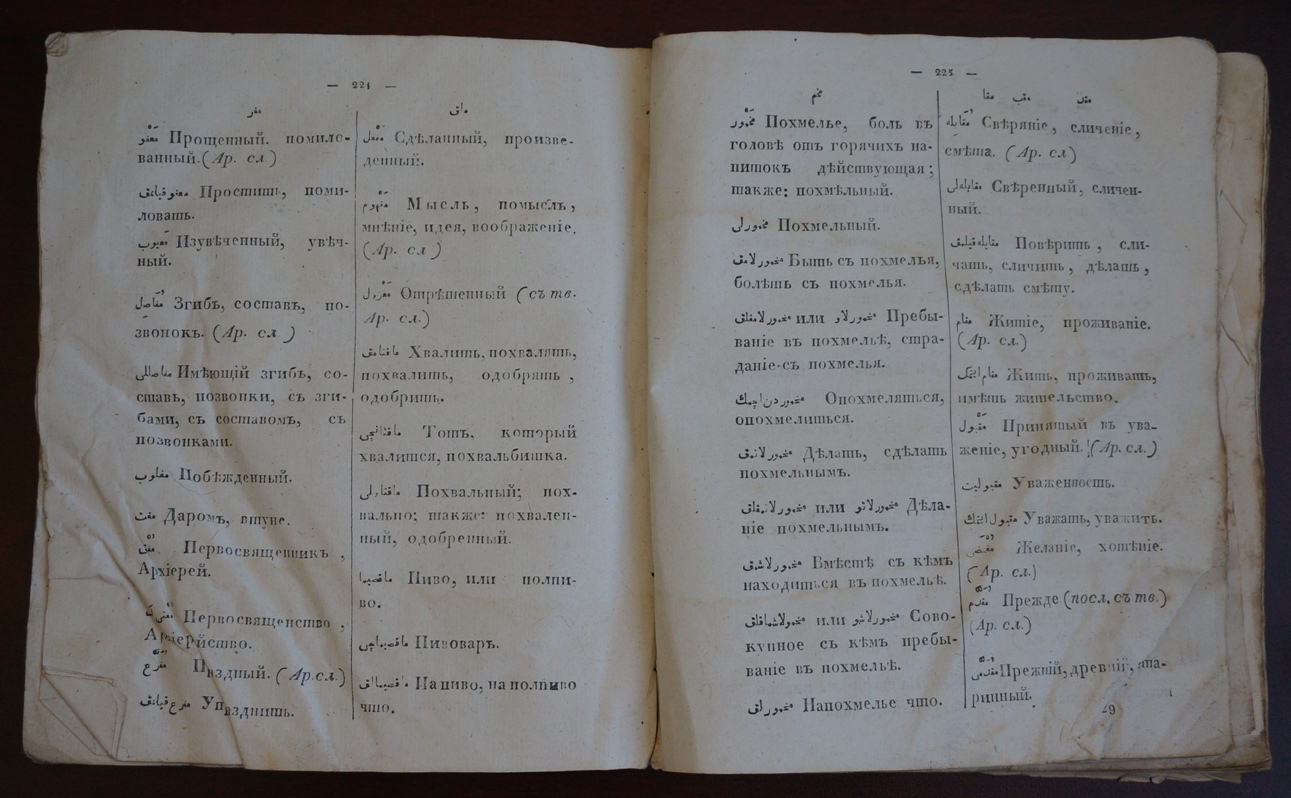 — 224 —
معفو Прощенный. помило-
ванный. (Ар. сл)
معفو قيلمق Простить, поми-
ловать.
معيوب Изувѣченный, увѣч-
ный.
مفاصل Згибъ, составъ, по-
звонокъ. (Ар. сл)
مفاصللى Имѣющій згибъ, со-
ставъ, позвонки, съ зги-
бами, съ составомъ, съ
позвонками.
مغلوب Побѣжденный.
مفت Даромъ, втуне.
مفتى Первосвященникъ,
Архіерей.
Первосвященство,
Архіерейство.
مفرغ Праздный. (Ар. сл)
مفرغ قيلمق Упразднить.
مفعول Сдѣланный, произве-
денный.
مفهوم Мысль, помыслъ,
мнѣніе, идея, воображеніе.
(Ар. сл)
معزول Отрѣшенный (съ тв.
Ар. сл.)
ماقتامق Хвалить, похвалять,
похвалить, одобрять,
одобрить.
ماقتانچى Тотъ, который
хвалится, похвальбишка.
Похвальный; пох-
вально; также: похвален-
ный, одобренный.
ماقصيما Пиво, или полпи-
во.
ماقصيماچى Пивоваръ.
На пиво, на полпиво
что.
— 225 —
مخمور Похмелье, боль въ
головѣ отъ горячихъ на-
питокъ дѣйствующая;
также: похмѣльный.
مخمورلى Похмельный.
مخمورلامق Быть съ похмелья,
болѣть съ похмелья.
مخمورلامقلق или مخمورلاو Пребы-
ваніе въ похмельѣ, стра-
даніе съ похмелья.
مخموردن اچمك Опохмеляться,
опохмелиться.
مخمورلاتمق Дѣлать, сдѣлать
похмельнымъ.
مخمورلاتمقلق или مخمورلاتو Дѣла-
ніе похмельнымъ.
مخمورلاشمق Вмѣстѣ съ кѣмъ
находиться въ похмельѣ.
مخمورلاشماقلق или مخمورلاشو Сово-
купное съ кѣмъ пребы-
ваніе въ похмельѣ.
Напохмелье что.
مقابله Свѣряніе, сличеніе,
смѣта. (Ар. сл)
مقابله‌لى Свѣренный, сличен-
ный.
مقابله قيلمق Повѣрить, сли-
чать, сличить, дѣлать,
сдѣлать смѣту.
مقام Житіе, проживаніе.
(Ар. сл.)
مقام اتمك Жить, проживать,
имѣть жительство.
مقبول Принятый въ ува-
женіе, угодный. (Ар. сл.)
مقبوليت Уваженность.
مقبول اتمك Уважать, уважить.
Желаніе, хотѣніе.
(Ар. сл.)
مقدم Прежде (посл. съ тв.)
(Ар. сл.)
مقدمى Прежній, древній, ста-
ринный.
29